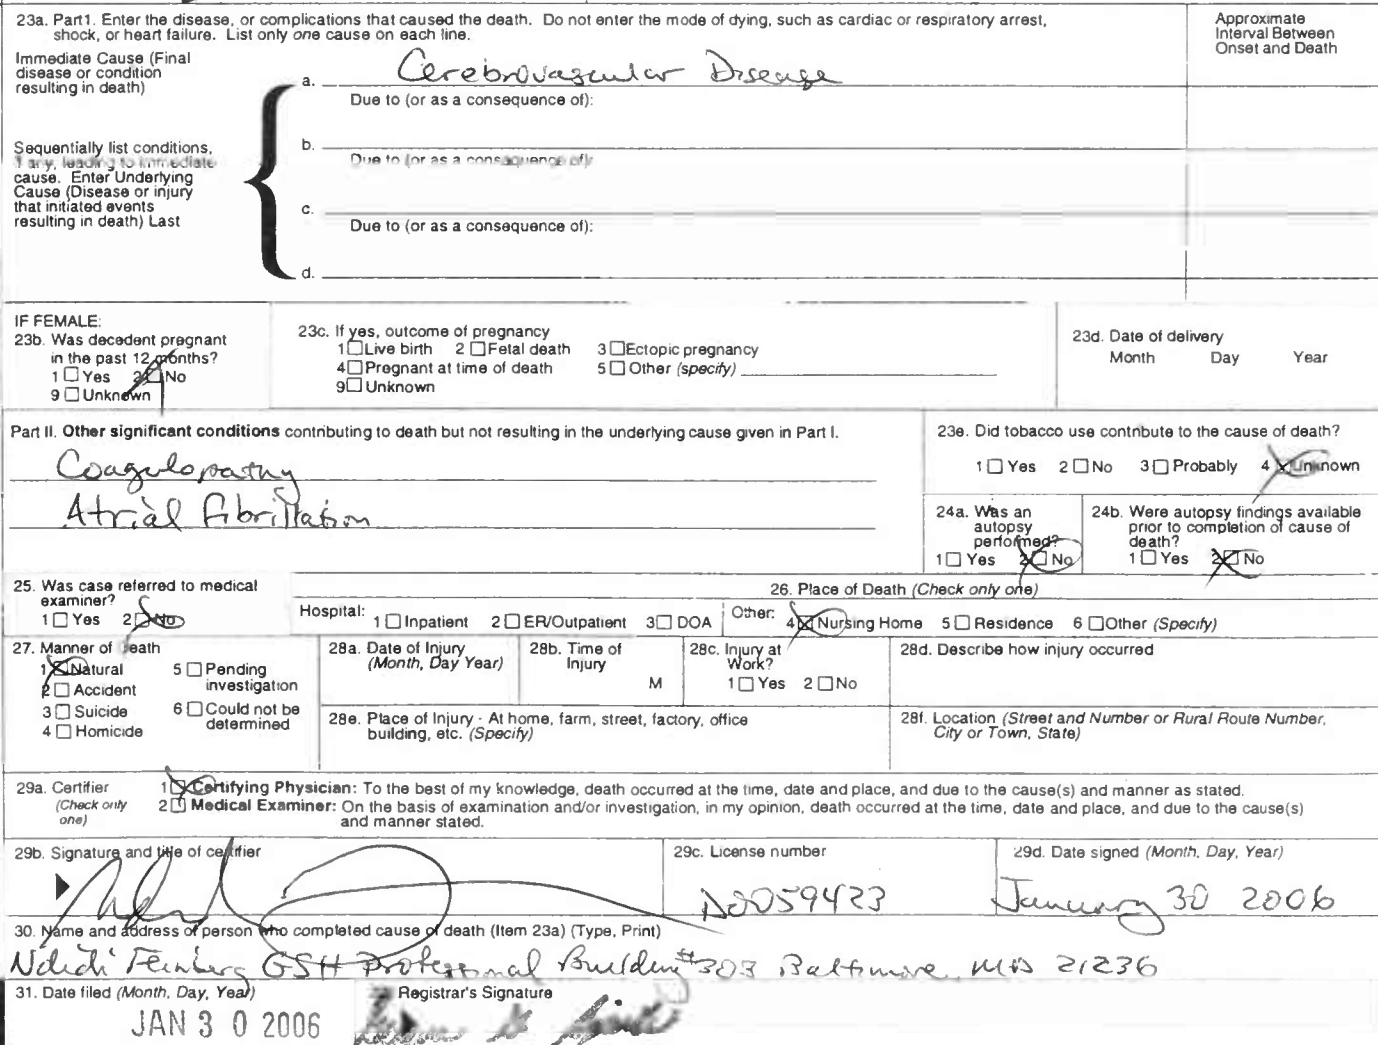 23a. Part1. Enter the disease, or complications that caused the death. Do not enter the mode of dying, such as cardiac or respiratory arrest,
shock, or heart failure. List only one cause on each line.
Approximate
Interval Between
Onset and Death
Immediate Cause (Final
disease or condition
resulting in death)
a. Cerebrovascular Disease
Due to (or as a consequence of):
Sequentially list conditions,
if any, leading to immediate
cause. Enter Underlying
Cause (Disease or injury
that initiated events
resulting in death) Last
b.
Due to (or as a consequence of):
c.
Due to (or as a consequence of):
d.
IF FEMALE:
23b. Was decedent pregnant
in the past 12 months?
1 Yes 2 No
9 Unknown
23c. If yes, outcome of pregnancy
1 Live birth 2 Fetal death 3 Ectopic pregnancy
4 Pregnant at time of death 5 Other (specify)
9 Unknown
23d. Date of delivery
Month Day Year
Part II. Other significant conditions contributing to death but not resulting in the underlying cause given in Part I.
Coagulopathy
Atrial Fibrillation
23e. Did tobacco use contribute to the cause of death?
1 Yes 2 No 3 Probably 4 Unknown
24a. Was an
autopsy
performed?
1 Yes 2 No
24b. Were autopsy findings available
prior to completion of cause of
death?
1 Yes 2 No
25. Was case referred to medical
examiner?
1 Yes 2 No
26. Place of Death (Check only one)
Hospital: 1 Inpatient 2 ER/Outpatient 3 DOA Other: 4 Nursing Home 5 Residence 6 Other (Specify)
27. Manner of Death
1 Natural
2 Accident
3 Suicide
4 Homicide
5 Pending
investigation
6 Could not be
determined
28a. Date of Injury
(Month, Day Year)
28b. Time of
Injury
M
28c. Injury at
Work?
1 Yes 2 No
28d. Describe how injury occurred
28e. Place of Injury - At home, farm, street, factory, office
building, etc. (Specify)
28f. Location (Street and Number or Rural Route Number,
City or Town, State)
29a. Certifier
(Check only
one)
1 Certifying Physician: To the best of my knowledge, death occurred at the time, date and place, and due to the cause(s) and manner as stated.
2 Medical Examiner: On the basis of examination and/or investigation, in my opinion, death occurred at the time, date and place, and due to the cause(s)
and manner stated.
29b. Signature and title of certifier
29c. License number
D0059423
29d. Date signed (Month, Day, Year)
January 30 2006
30. Name and address of person who completed cause of death (Item 23a) (Type, Print)
Ndidi Feinberg GSH Professional Building #303 Baltimore, MD 21236
31. Date filed (Month, Day, Year)
JAN 30 2006
Registrar's Signature